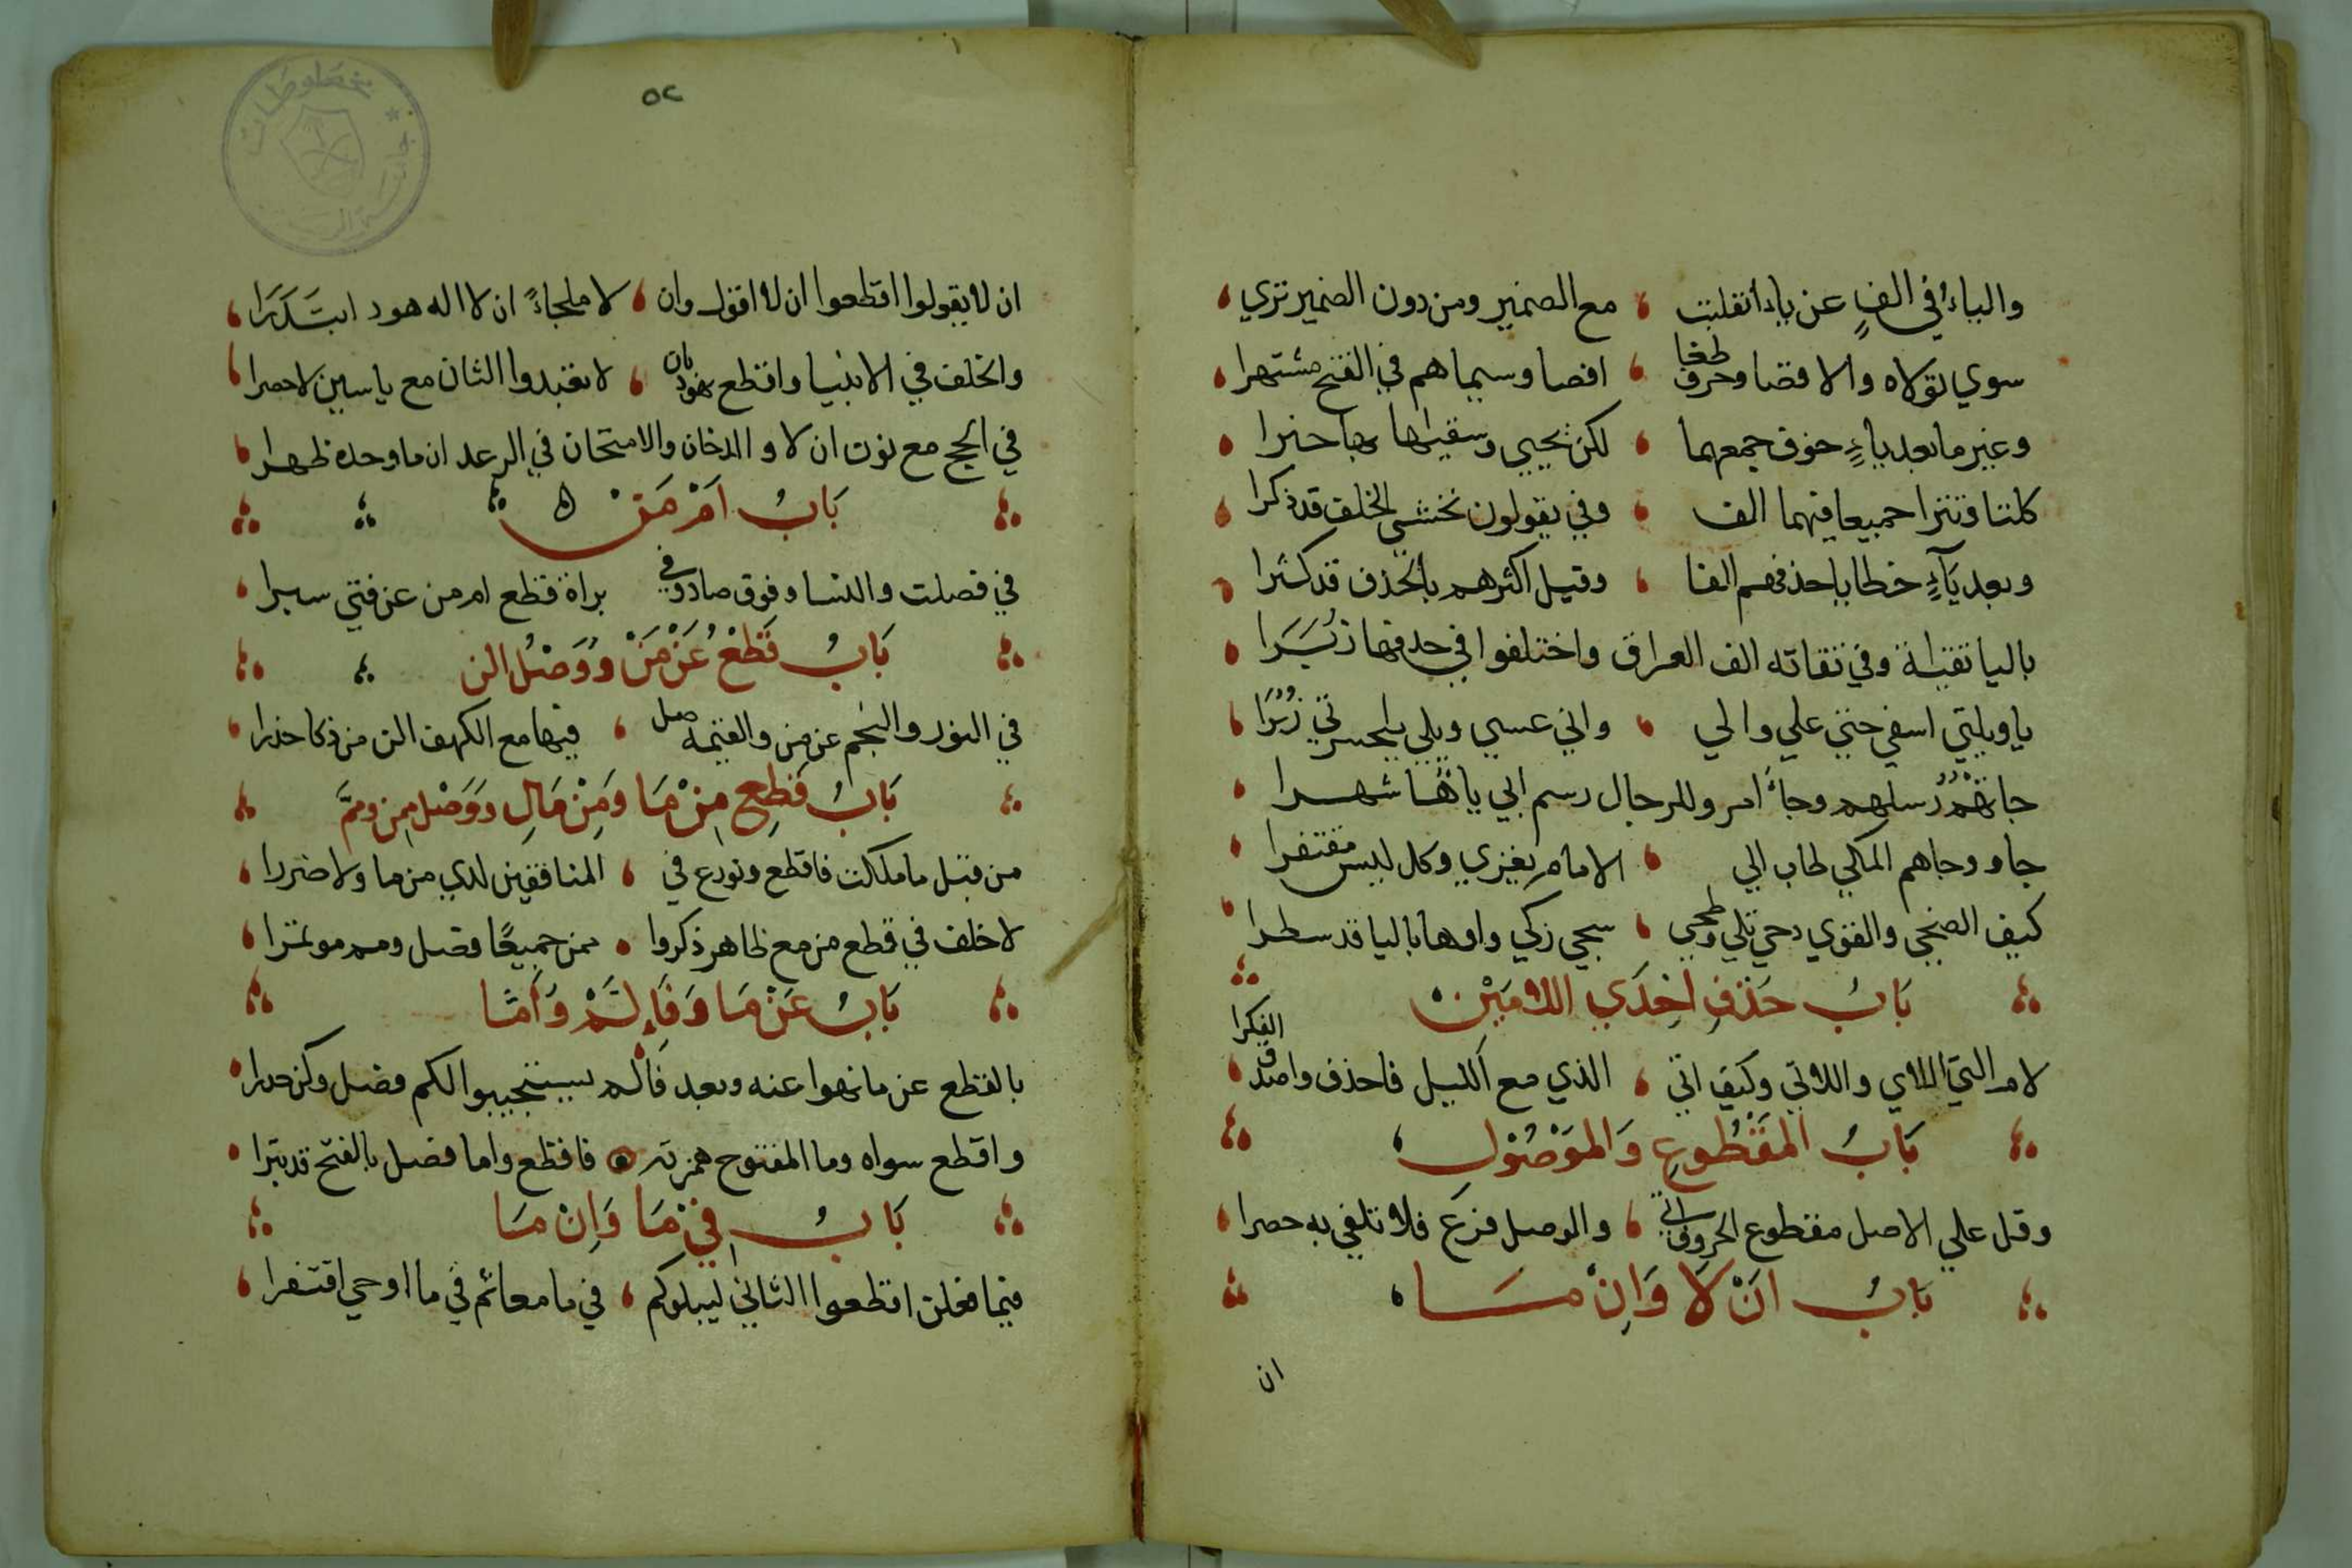 والياء في الف عن ياء انقلبت مع الضمير ومن دون الضمير تري
سوي تولاه والاقصا وحرف طغا اقصا وسيماهم في الفتح مشتهرا
وغير ما بعد ياءٍ خوف جمعهما لكن يحيي وسقيها بها حبرا
كلتا وتترا جميعا فيهما الف وفي يقولون نخشي الخلف قد ذكرا
وبعد ياءٍ خطايا حذفهم الفا وقيل اكثرهم بالحذف قد كثرا
باليا تقية وفي تقاته الف العراق واختلفوا في حذفها زبرا
ياويلتي اسفي حتي علي والي واني عسي وبلي ياحسرتي زبرا
جاتهم رسلهم وجاء امر وللرجال رسم ابي ياءها شهرا
جاو وجاهم المكي طاب الي الامام يعزي وكل ليس مقتفرا
كيف الضحي والقوي دحي تلي وطحي سجي زكي واوها باليا قد سطرا
بَابُ حَذْفِ احْدَي اللامَيْنْ
لام التي اللاي واللاتي وكيف اتي الذي مع الليل فاحذف واصدق الفكرا
بَابُ المَقْطُوعِ وَالمَوْصُوْلِ
وقل علي الاصل مقطوع الحروف اتي والوصل فرع فلا تلفي به حصرا
بَابُ انْ لَا وَانْ مَا
ان
٥٢
ان لا يقولوا اقطعوا ان لا اقول وان لا ملجاءً ان لا اله هود ابتدرا
والخلف في الانبيا واقطع بهود بان لا تعبدوا الثان مع ياسين لا حصرا
في الحج مع نون ان لا والدخان والامتحان في الرعد ان ما وحده ظهرا
بَابُ امْ مَنْ
في فصلت والنسا وفوق صاد وفي براة قطع ام من عن فتي سبرا
بَابُ قَطْعُ عَنْ مَنْ وَوَصْلُ الن
في النور والنجم عن من والقيمة صل فيها مع الكهف الن من ذكا حزرا
بَابُ قَطِع مِنْ مَا وَمِنْ مَالِ وَوَصْل ممن ومم
من قبل ما ملكت فاقطع ونوزع في المنافقين لدي من ما ولا ضررا
لا خلف في قطع من مع ظاهر ذكروا ممن جميعًا فصل ومم موتمرا
بَابُ عَنْ مَا وَفَإِلَّمْ وَأَمَّا
بالقطع عن ما نهوا عنه وبعد فالم يستجيبوا لكم فصل وكن حذرا
واقطع سواه وما المفتوح همزته فاقطع واما فصل بالفتح قد نبرا
بَابُ فِيْ مَا وَانْ مَا
فيما فعلن اقطعوا الثاني ليبلوكم في ما معا ثم في ما اوحي اقتفرا
مخطوطات